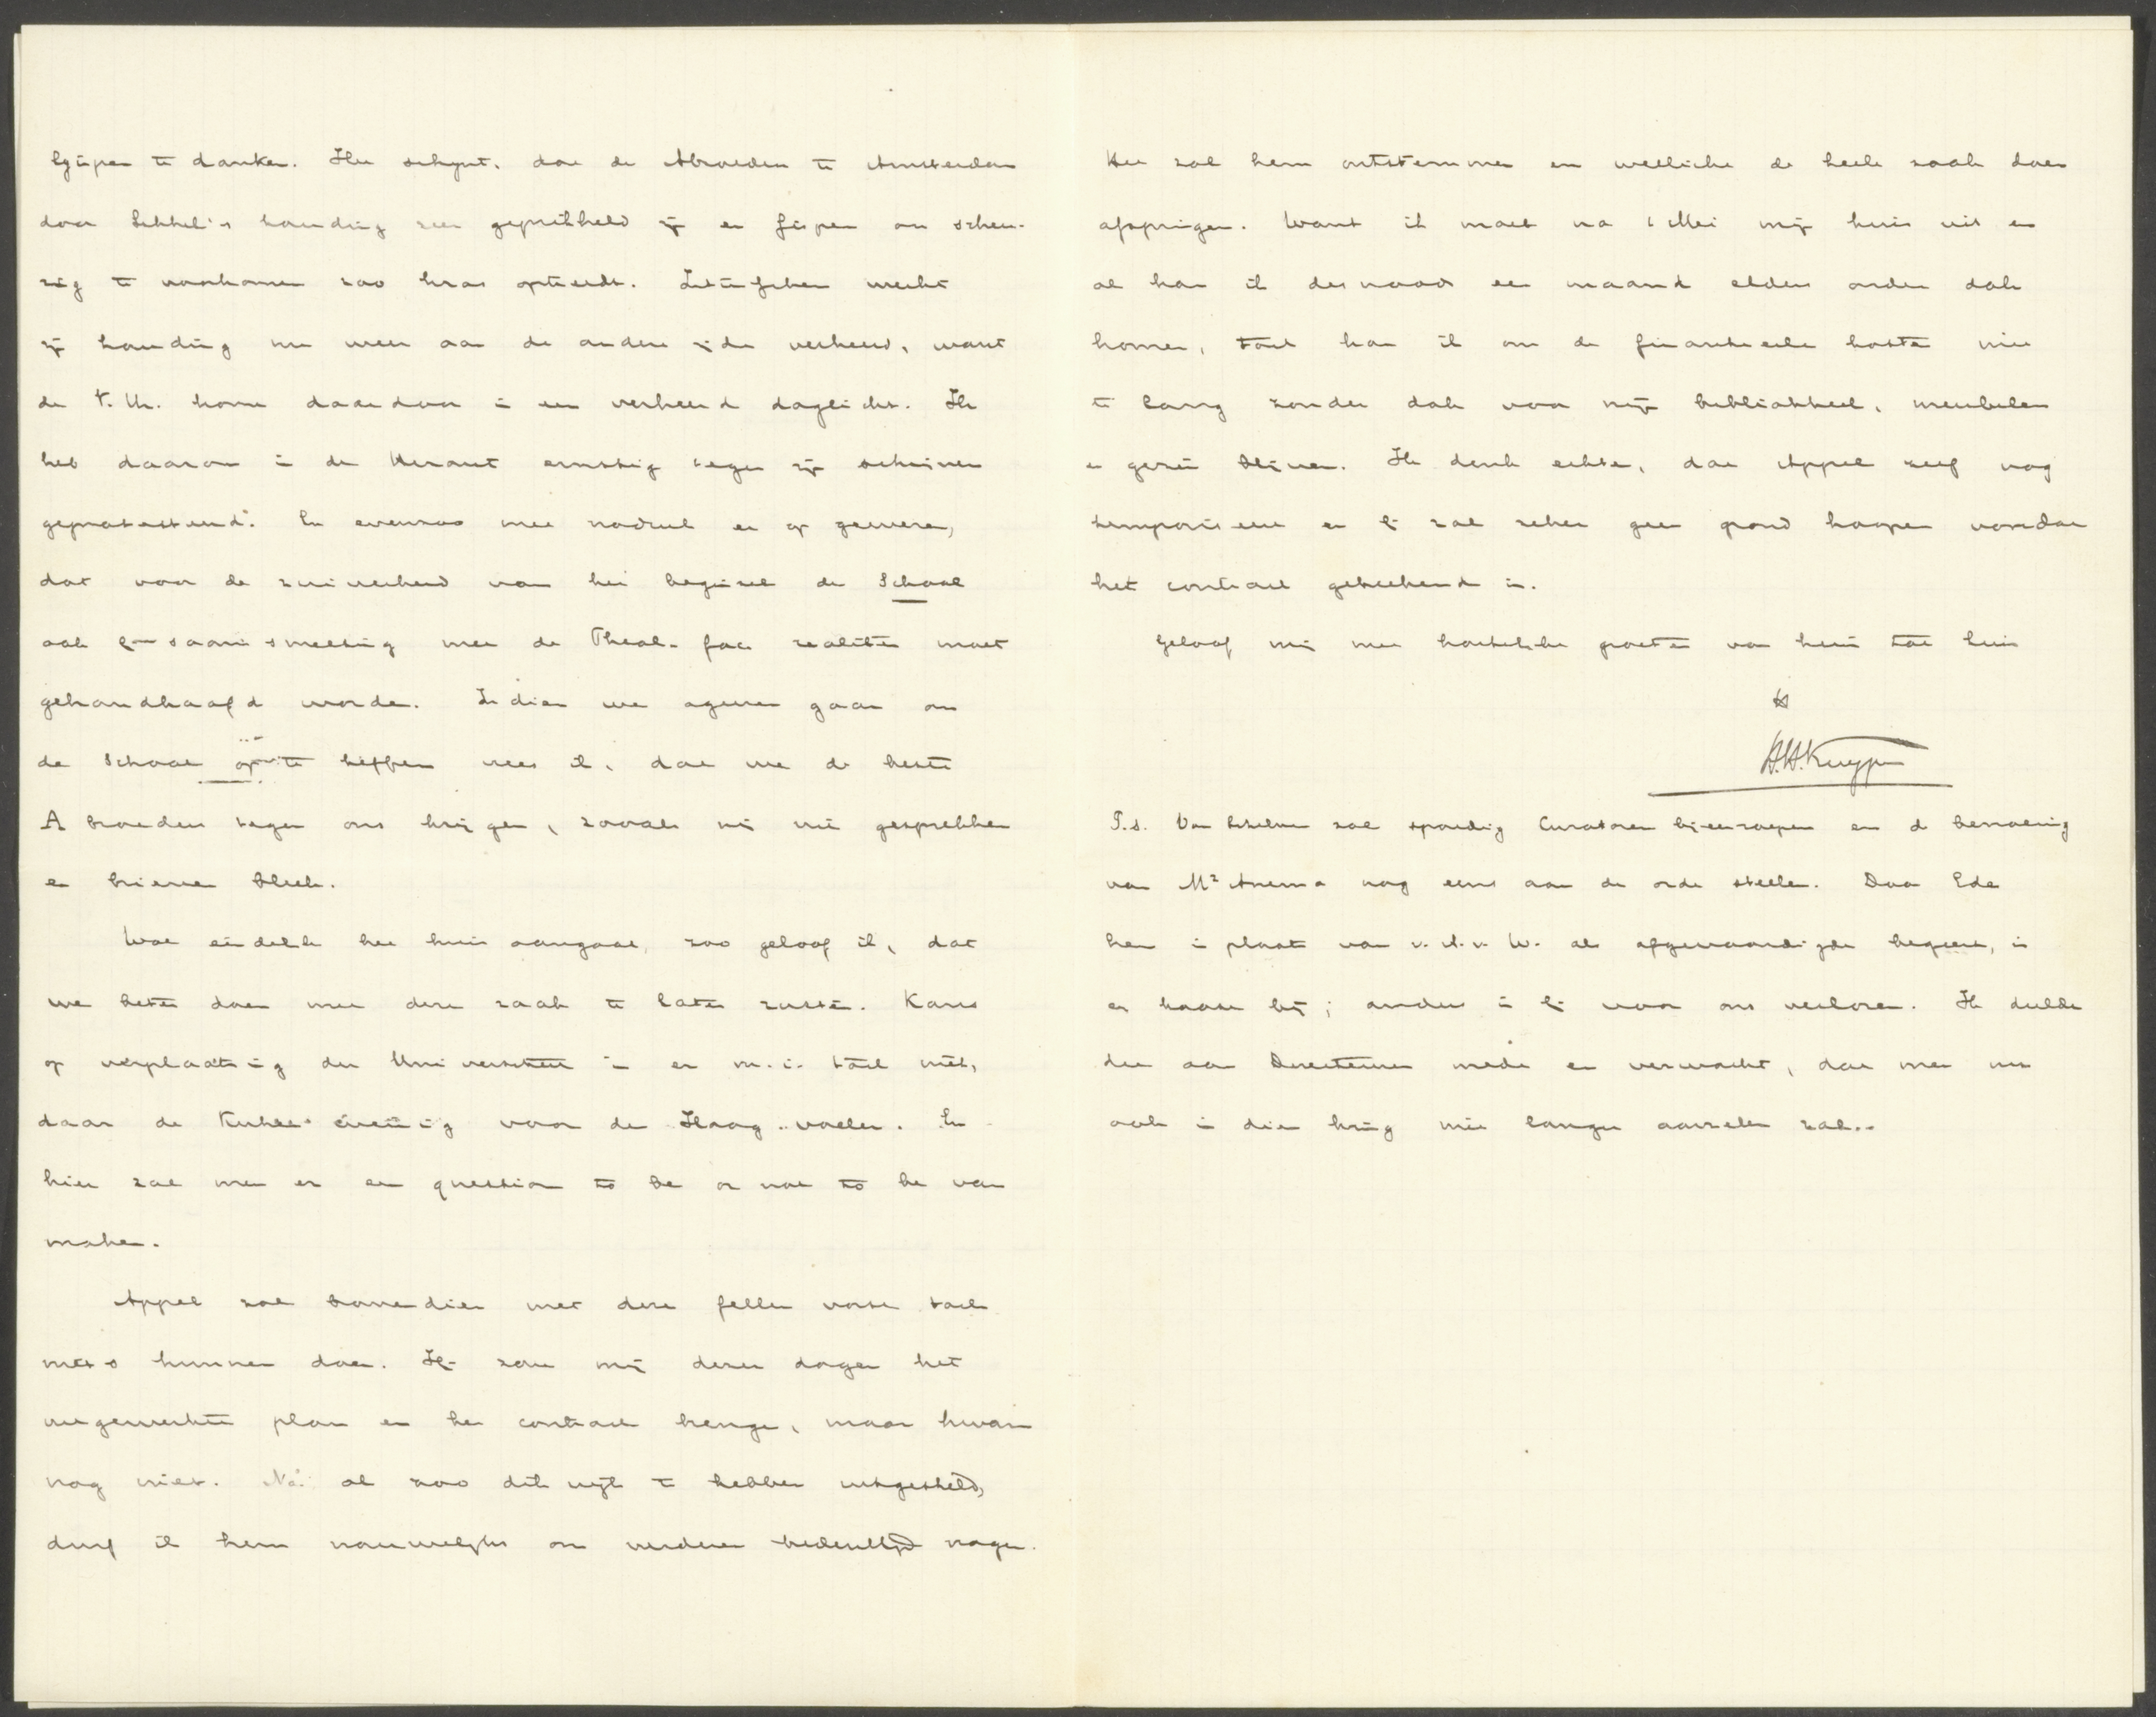 te danken. Het schijnt, dat de A broeders te Amsterdam
door houding zeer geprikkeld zijn en om scheu-
ring te voorkomen zoo kras optreedt. Intusschen werkt
zijn houding nu weer aan de andere zijde verkeerd, want
de V.U. komt daardoor in een verkeerd daglicht. Ik
heb daarom in de Heraut ernstig tegen zijn schrijven
geprotesteerd. En evenzoo met nadruk er op gewezen,
dat voor de zuiverheid van het beginsel de School
ook bij saamsmelting met de Theol. fac realiter moet
gehandhaafd worden. Indien we ageeren gaan om
de School op te heffen vrees ik, dat we de beste
A broeders tegen ons krijgen, zooals mij uit gesprekken
en brieven bleek.
Wat eindelijk het huis aangaat, zoo geloof ik, dat
we beter doen met deze zaak te laten rusten. Kans
op verplaatsing der Universiteit is er m.i. toch niet,
daar de voor den Haag voelen. En
hier zal men er een question to be or not to be van
maken.
Appel zal bovendien met deze felle vorst toch
niets kunnen doen. Hij zou mij dezer dagen het
uitgewerkte plan en het contract brengen, maar kwam
nog niet. Na al zoo dikwijls te hebben uitgesteld,
durf ik hem nauwelijks om verderen bedenktijd vragen.
Het zal hem ontstemmen en wellicht de heele zaak doen
afspringen. Want ik moet na 1 Mei mijn huis uit en
al kan ik des noods een maand elders onder dak
komen, toch kan ik om de financieele kosten niet
te lang zonder dak voor mijn bibliotheek, meubelen
en gezin blijven. Ik denk echter, dat Appel zelf nog
temporiseert en hij zal zeker geen grond koopen voordat
het contract geteekend is.
Geloof mij met hartelijke groeten van huis tot huis
tt
H.H. Kuyper
P.s. Van Schelven zal spoedig Curatoren bijeenroepen en de benoeming
van Mr Anema nog eens aan de orde stellen. Daar Ede
hem in plaats van v. A. v. W. als afgevaardigde begeert, is
er haast bij; anders is hij voor ons verloren. Ik deelde
dit aan Directeuren mede en verwacht, dat men nu
ook in dien kring niet langer aarzelen zal.